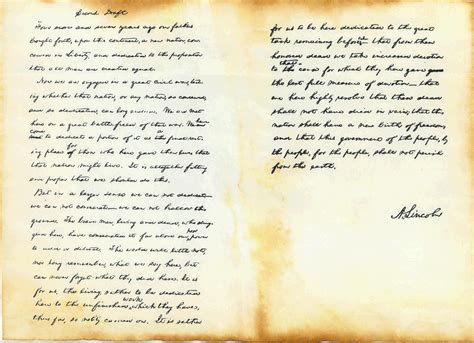 Second Draft
Four score and seven years ago our fathers
brought forth, upon this continent, a new nation, con-
ceived in Liberty, and dedicated to the proposition
that all men are created equal.
Now we are engaged in a great civil war, test-
ing whether that nation, or any nation, so conceived,
and so dedicated, can long endure. We are met
here on a great battlefield of that war. We have
come to dedicate a portion of it as the final rest-
ing place for those who here gave their lives that
that nation might live. It is altogether fitting
and proper that we should do this.
But in a larger sense we can not dedicate
we can not consecrate we can not hallow this
ground. The brave men, living and dead, who strug-
gled here, have consecrated it far above our poor
to add or detract. The world will little note,
nor long remember, what we say here, but
can never forget what they did here. It is
for us, the living rather to be dedicated
here to the unfinished work which they have,
thus far, so nobly carried on. It is rather
for us to be here dedicated to the great
task remaining before us that from these
honored dead we take increased devotion
to the cause for which they here gave
the last full measure of devotion that
we here highly resolve that these dead
shall not have died in vain; that the
nation shall have a new birth of freedom,
and that this government of the people, by
the people, for the people, shall not perish
from the earth.
A. Lincoln